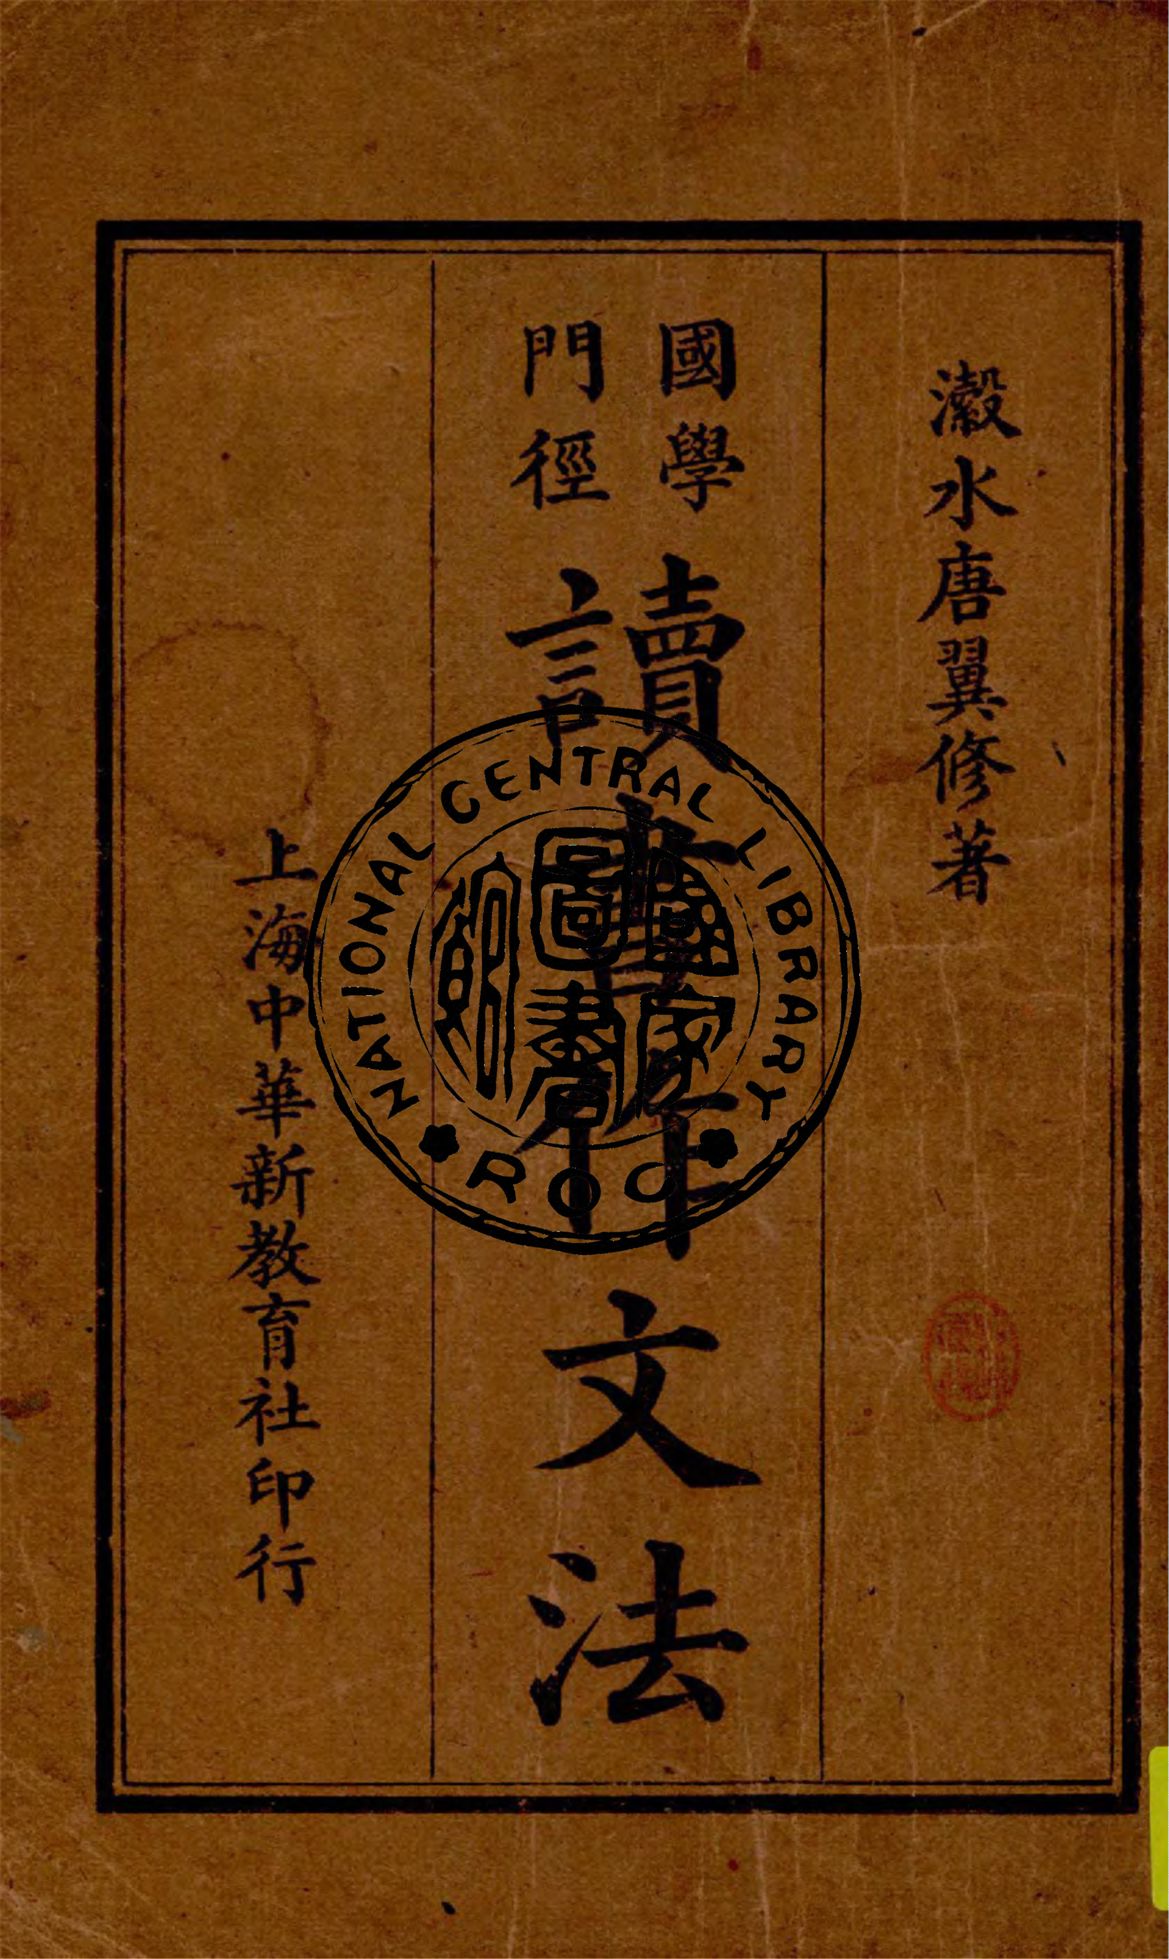 瀫水唐翼修著
國學
門徑
讀書作文法
上海中華新教育社印行
NATIONAL CENTRAL LIBRARY
國家
圖書
館
ROC